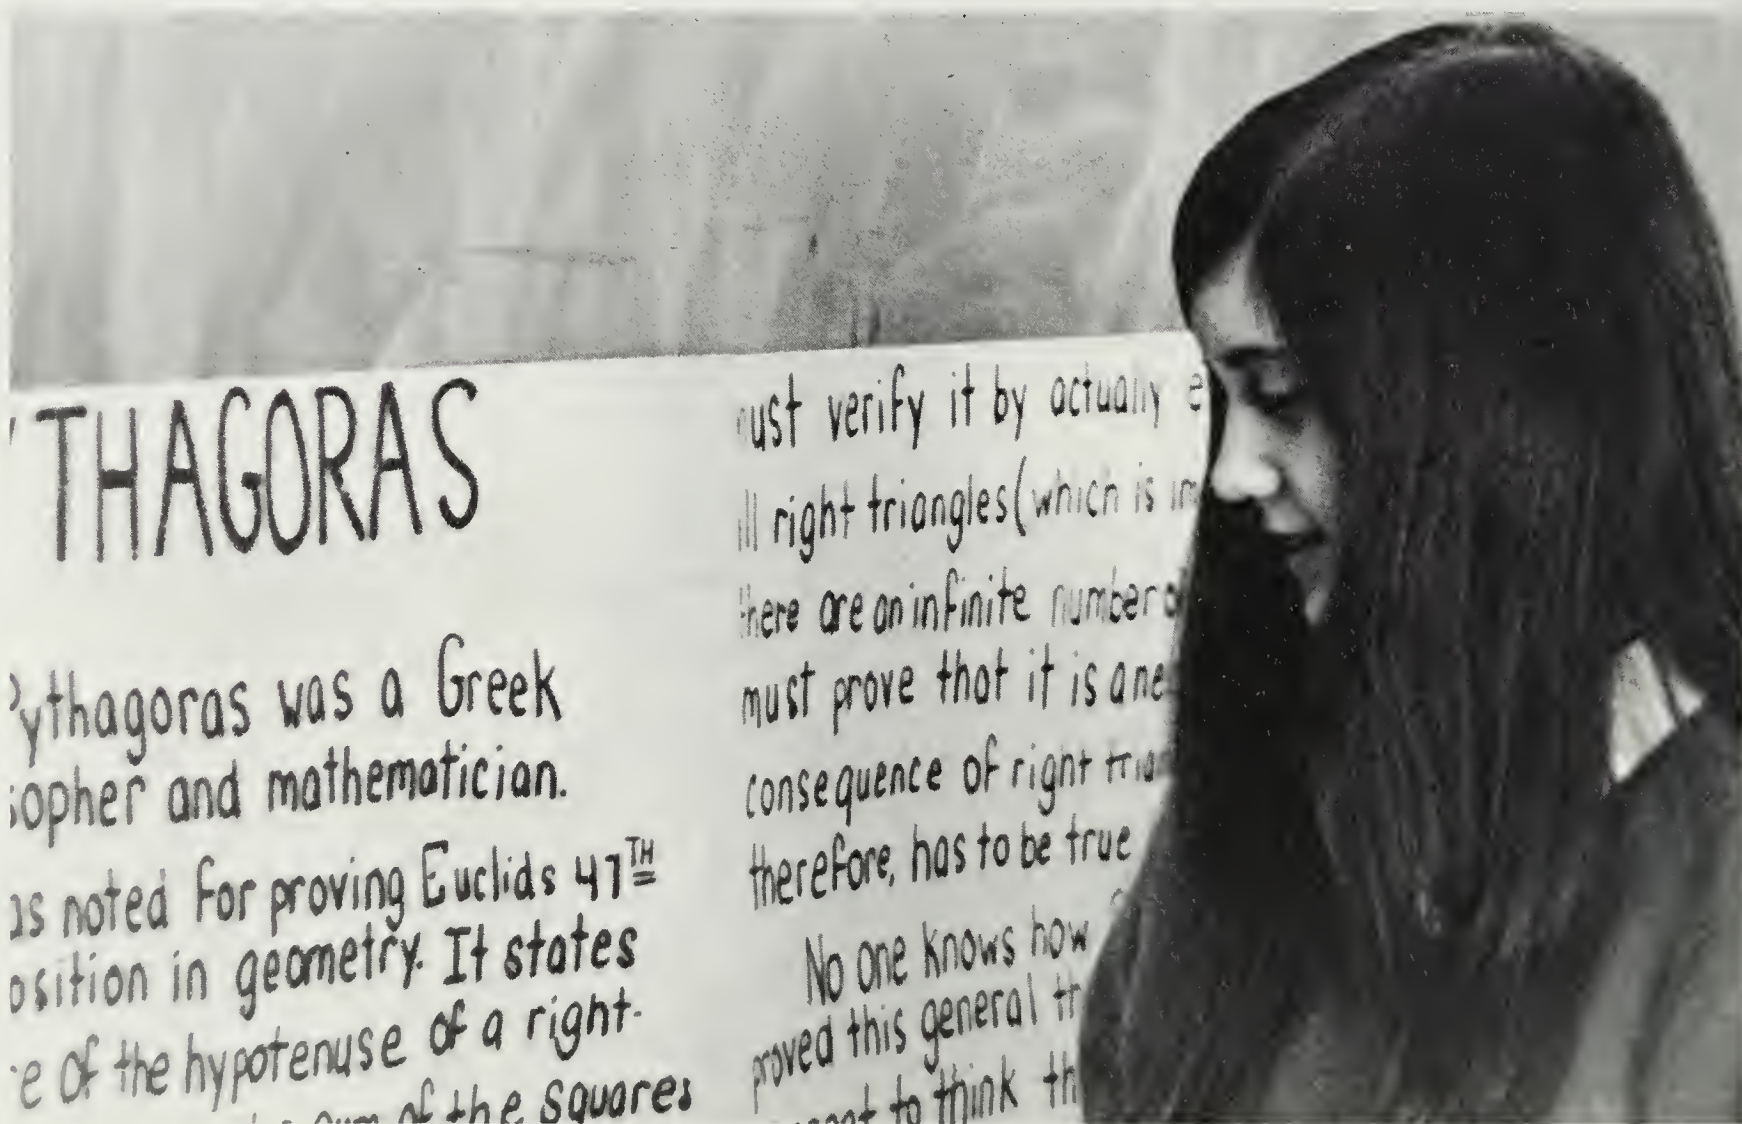 THAGORAS
Pythagoras was a Greek
sopher and mathematician.
as noted for proving Euclids 47TH
osition in geometry. It states
e of the hypotenuse of a right-
sum of the squares
ust verify it by actually e
ll right triangles (which is im
there are an infinite number o
must prove that it is a ne
consequence of right trian
therefore, has to be true
No one knows how
proved this general tr
to think th